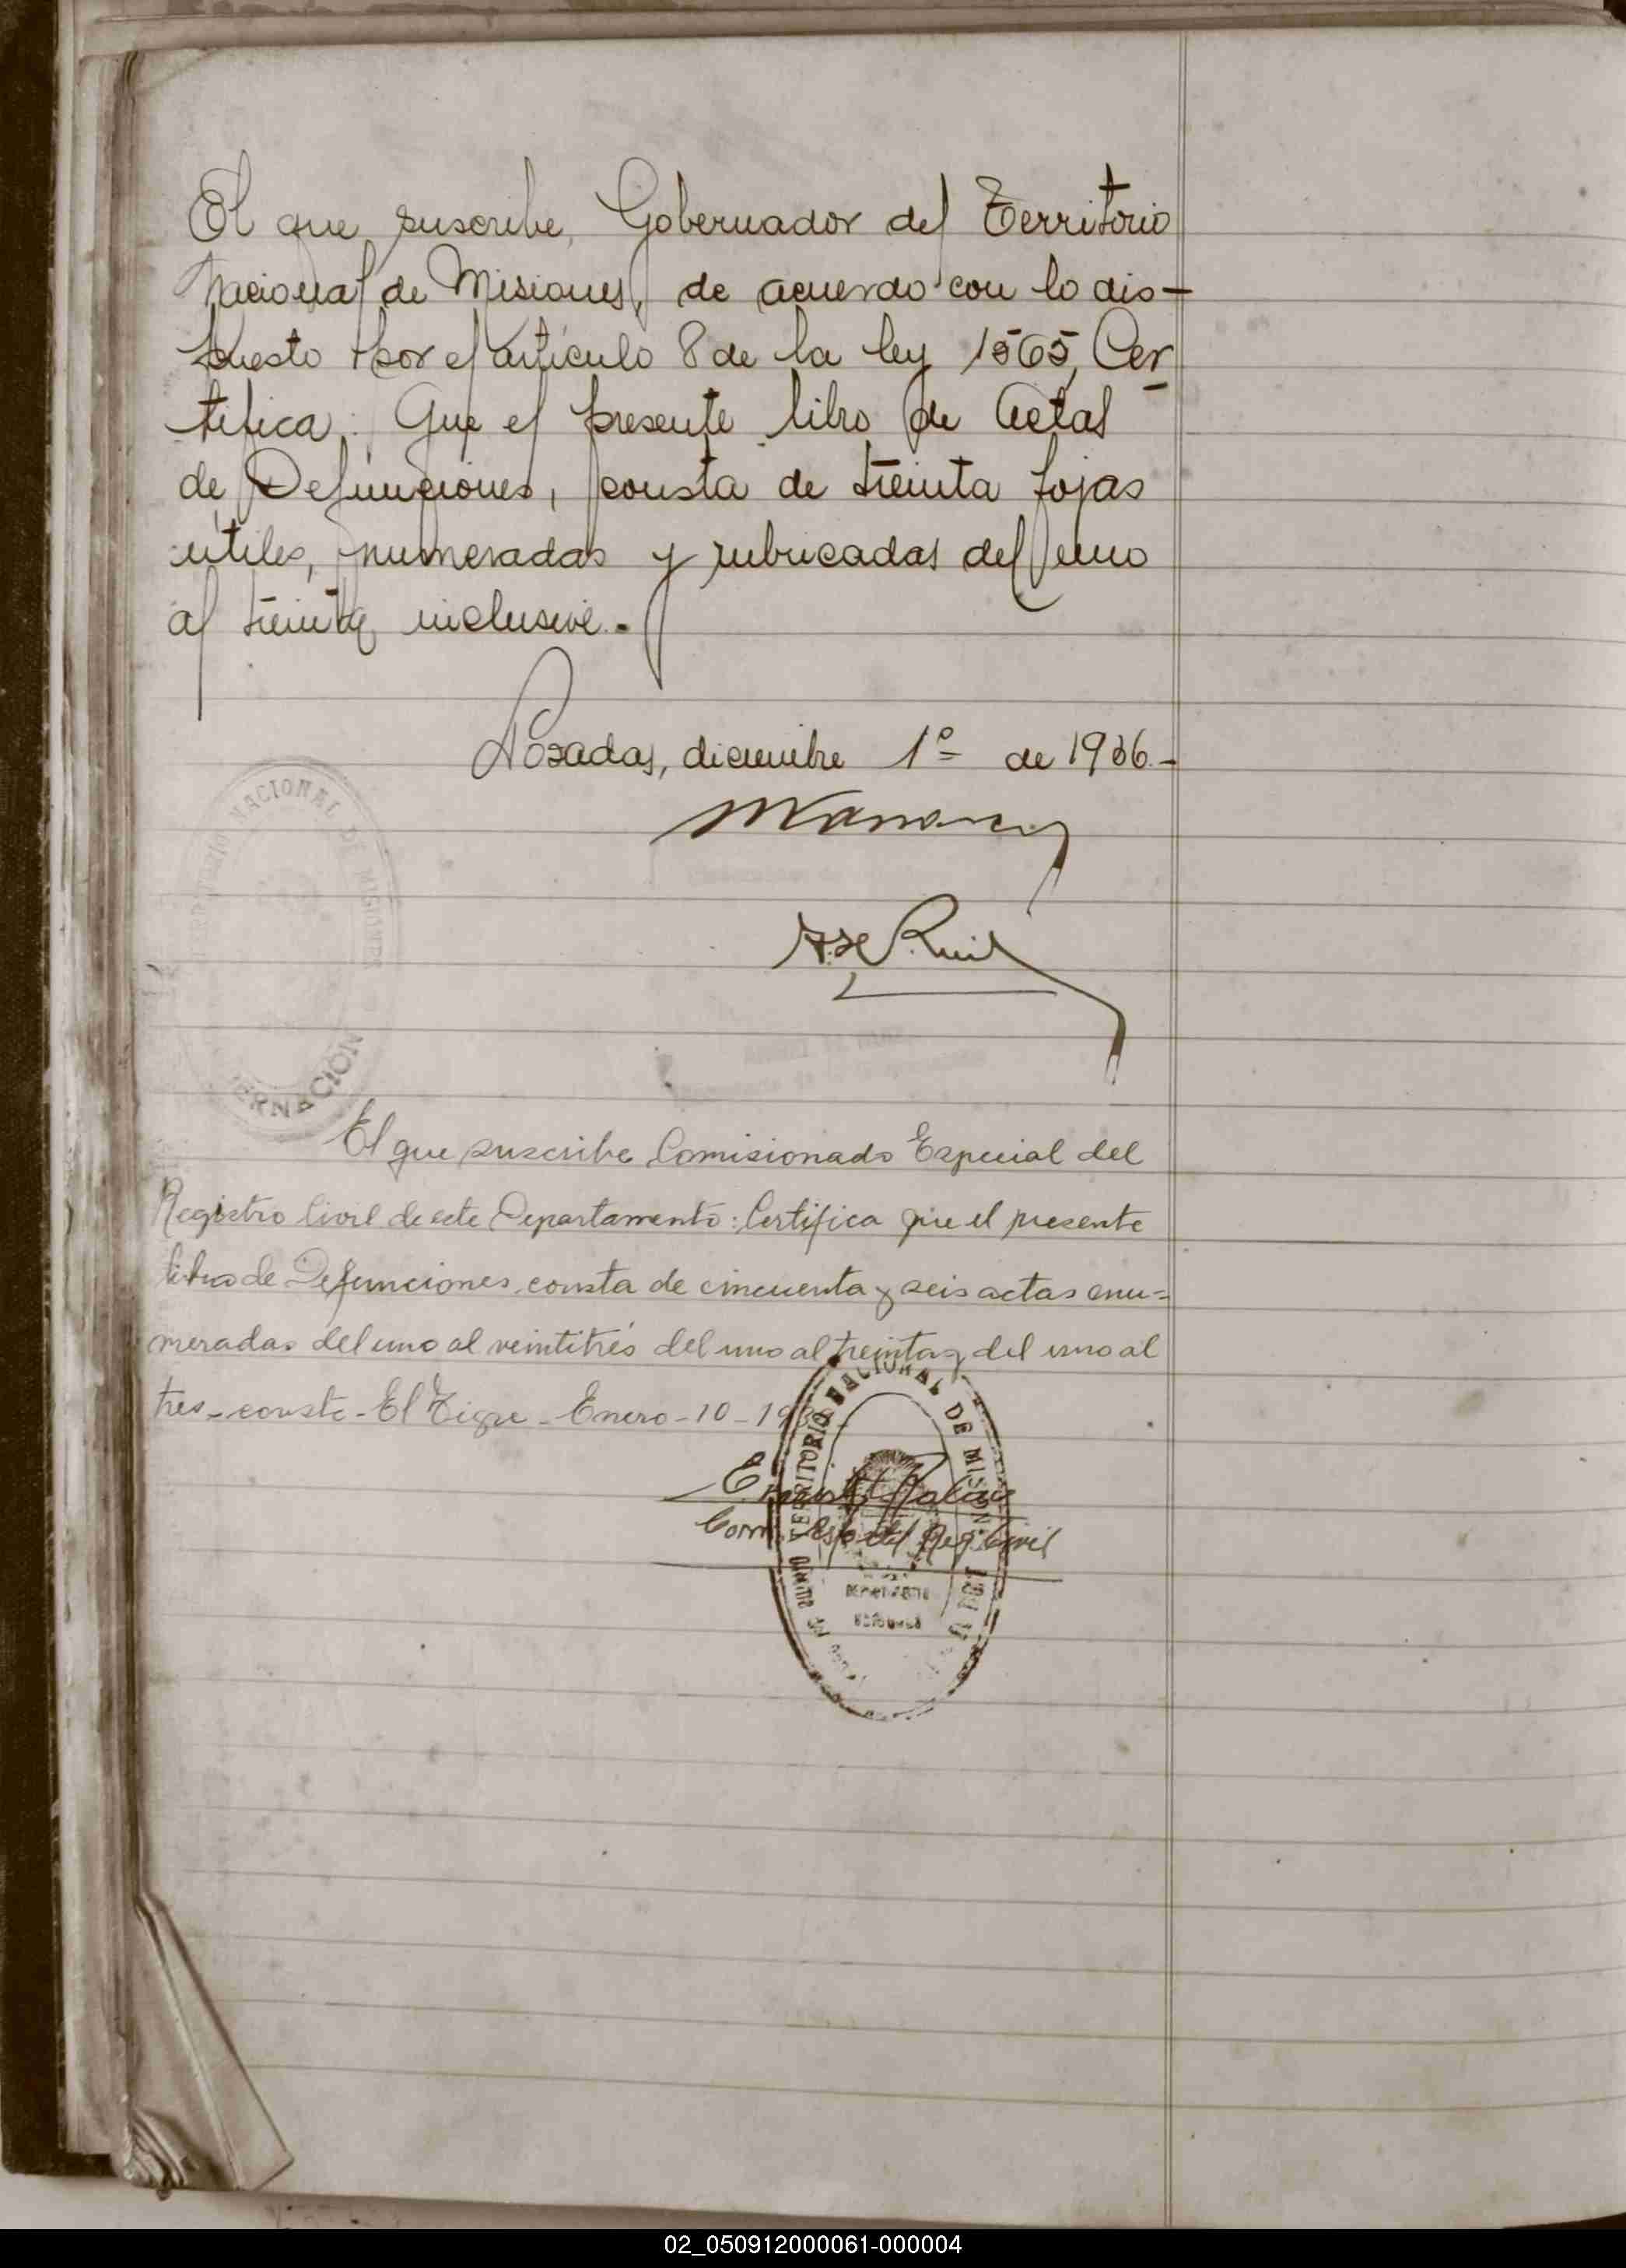 El que suscribe, Gobernador del Territorio
Nacional de Misiones, de acuerdo con lo dis-
puesto por el artículo 8 de la ley 1565, Cer-
tifica: Que el presente libro de Actas
de Defunciones, consta de treinta fojas
útiles, numeradas y rubricadas del uno
al treinta inclusive.-
Posadas, diciembre 1º de 1936.-
TERRITORIO NACIONAL DE MISIONES
ERNACIÓN
El que suscribe Comisionado Especial del
Registro Civil de este Departamento: Certifica que el presente
libro de Defunciones consta de cincuenta y seis actas enu=
meradas del uno al veintitrés del uno al treinta y del uno al
tres - conste - El Tigre - Enero - 10 -
TERRITORIO NACIONAL DE MISIONES
Com. Esp. del Reg. Civil
02_050912000061-000004